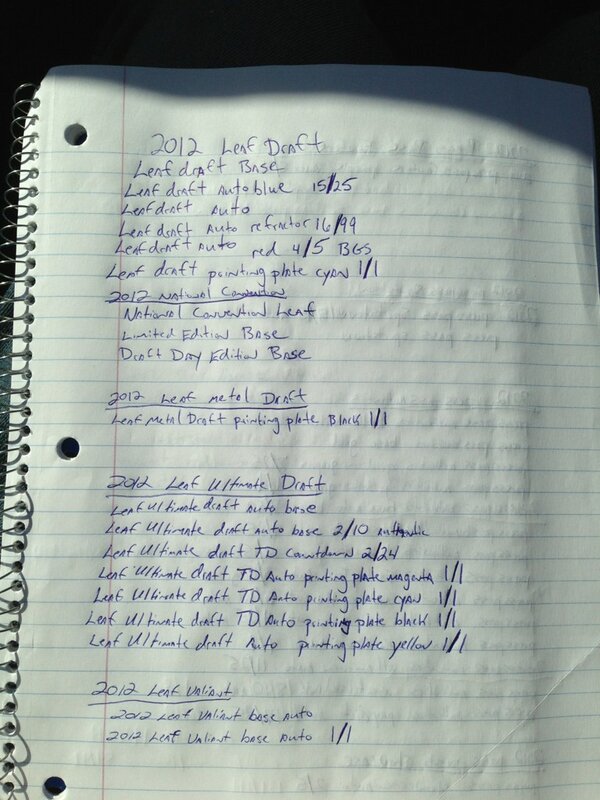 2012 Leaf Draft
Leaf draft Base
Leaf draft Auto blue 15/25
Leaf draft Auto
Leaf draft Auto refractor 16/99
Leaf draft Auto red 4/5 BGS
Leaf draft printing plate cyan 1/1
2012 National Convention
National Convention Leaf
Limited Edition Base
Draft Day Edition Base
2012 Leaf metal Draft
Leaf Metal Draft printing plate Black 1/1
2012 Leaf Ultimate Draft
Leaf Ultimate draft Auto base
Leaf Ultimate draft auto base 2/10 Authentic
Leaf Ultimate draft TD Countdown 2/24
Leaf Ultimate draft TD Auto printing plate magenta 1/1
Leaf Ultimate draft TD Auto printing plate cyan 1/1
Leaf Ultimate draft TD Auto printing plate black 1/1
Leaf Ultimate draft Auto printing plate yellow 1/1
2012 Leaf Valiant
2012 Leaf Valiant base Auto
2012 Leaf Valiant base Auto 1/1